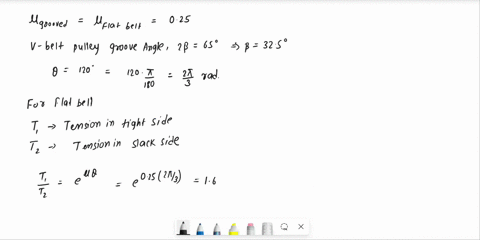 μgrooved = μflat belt = 0.25
V-belt pulley groove Angle, 2β = 65° ⇒ β = 32.5°
θ = 120° = 120·π/180 = 2π/3 rad.
For flat belt
T₁ → Tension in tight side
T₂ → Tension in slack side
T₁/T₂ = e^μθ = e^0.25(2π/3) = 1.6